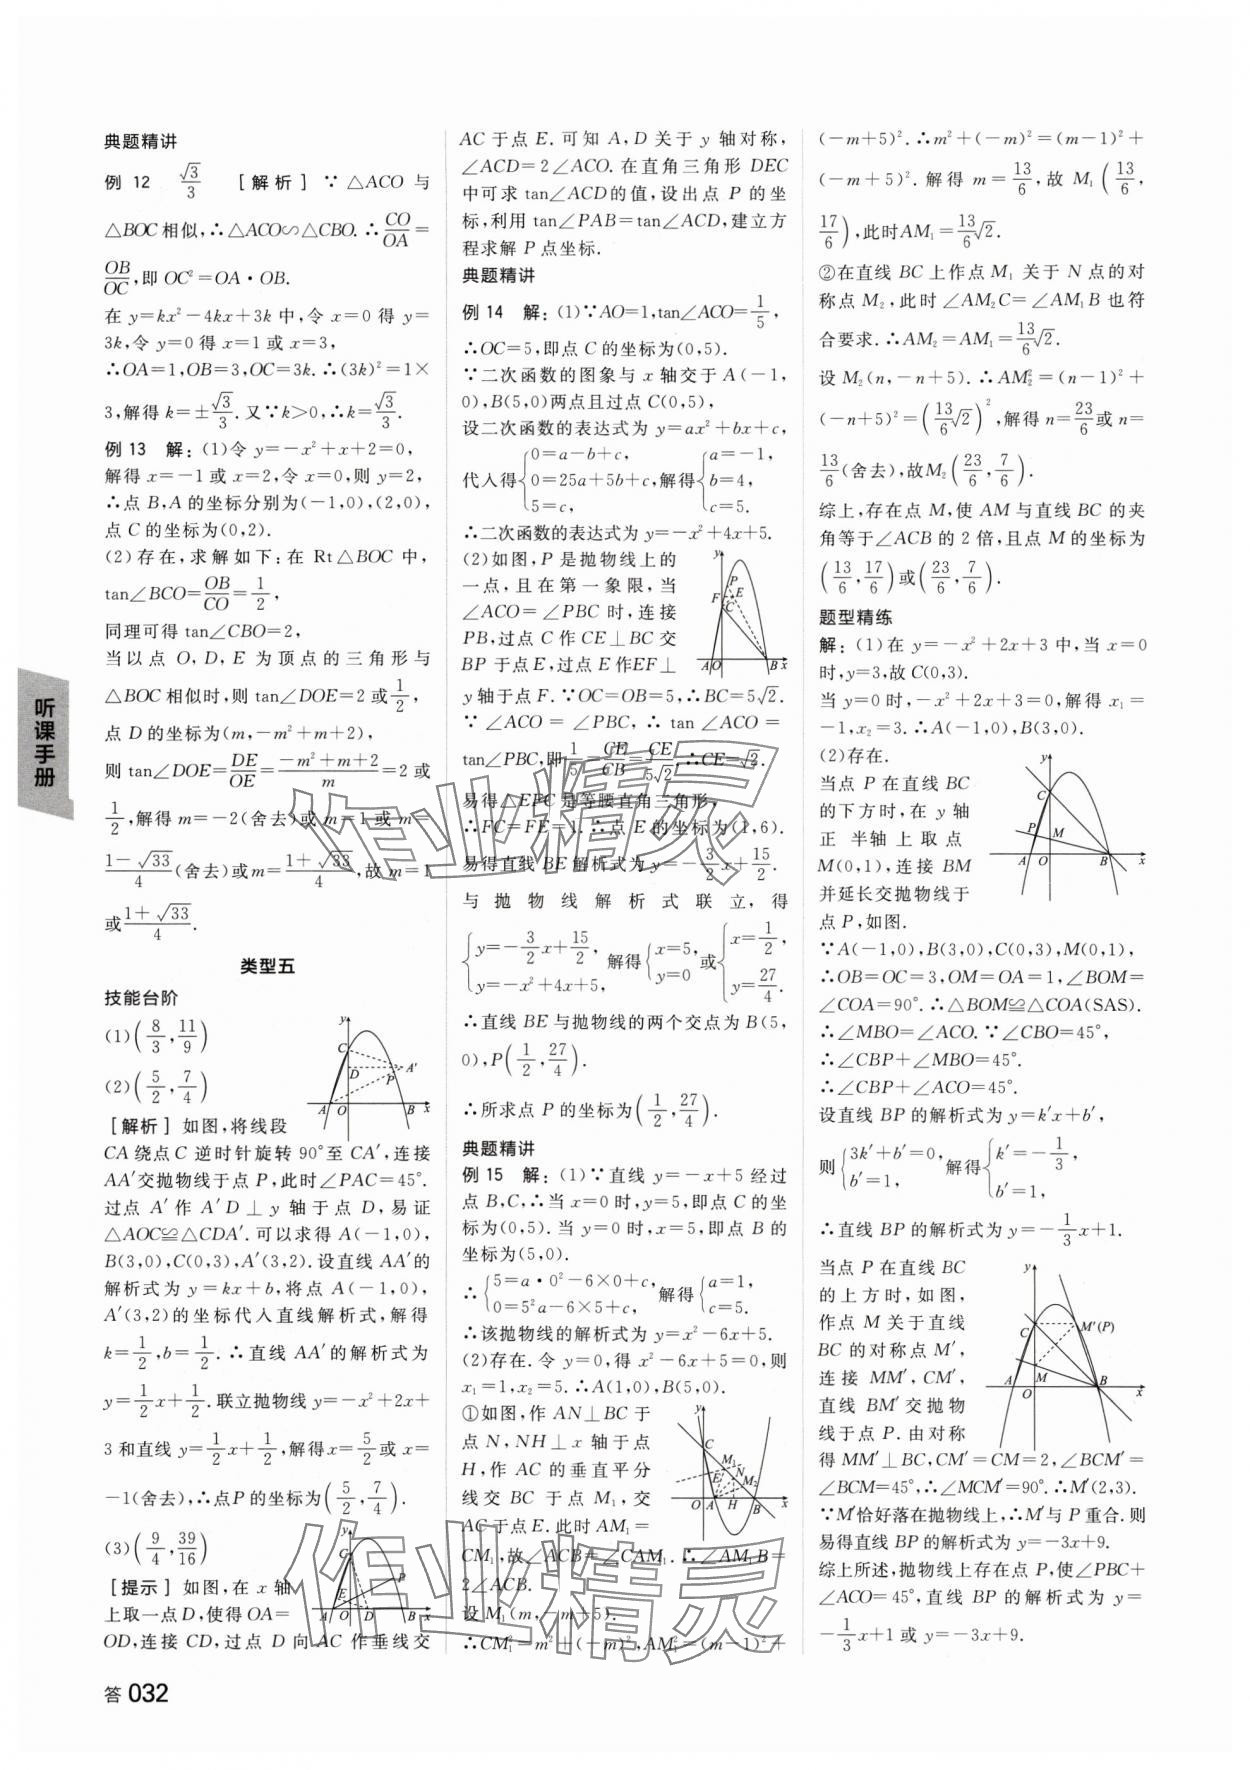 典题精讲
例 12 √3/3 [解析] ∵ △ACO 与
△BOC 相似,∴△ACO∽△CBO.∴CO/OA=
OB/OC,即 OC²=OA·OB.
在 y=kx²-4kx+3k 中,令 x=0 得 y=
3k,令 y=0 得 x=1 或 x=3,
∴OA=1,OB=3,OC=3k.∴(3k)²=1×
3,解得 k=±√3/3.又∵k>0,∴k=√3/3.
例 13 解:(1)令 y=-x²+x+2=0,
解得 x=-1 或 x=2,令 x=0,则 y=2,
∴点 B,A 的坐标分别为(-1,0),(2,0),
点 C 的坐标为(0,2).
(2)存在,求解如下:在 Rt△BOC 中,
tan∠BCO=OB/CO=1/2,
同理可得 tan∠CBO=2,
当以点 O,D,E 为顶点的三角形与
△BOC 相似时,则 tan∠DOE=2 或1/2,
点 D 的坐标为(m,-m²+m+2),
则 tan∠DOE=DE/OE=(-m²+m+2)/m=2 或
1/2,解得 m=-2(舍去)或 m=1 或 m=
(1-√33)/4(舍去)或m=(1+√33)/4,故 m=1
或(1+√33)/4.
类型五
技能台阶
(1)(8/3,11/9)
(2)(5/2,7/4)
[解析] 如图,将线段
CA 绕点 C 逆时针旋转 90°至 CA′,连接
AA′交抛物线于点 P,此时∠PAC=45°.
过点 A′作 A′D⊥y 轴于点 D,易证
△AOC≌△CDA′.可以求得 A(-1,0),
B(3,0),C(0,3),A′(3,2).设直线 AA′的
解析式为 y=kx+b,将点 A(-1,0),
A′(3,2)的坐标代入直线解析式,解得
k=1/2,b=1/2.∴直线 AA′的解析式为
y=1/2x+1/2.联立抛物线 y=-x²+2x+
3 和直线 y=1/2x+1/2,解得x=5/2或 x=
-1(舍去),∴点P的坐标为(5/2,7/4).
(3)(9/4,39/16)
[提示] 如图,在 x 轴
上取一点 D,使得 OA=
OD,连接 CD,过点 D 向 AC 作垂线交
AC 于点 E.可知 A,D 关于 y 轴对称,
∠ACD=2∠ACO.在直角三角形 DEC
中可求 tan∠ACD的值,设出点 P 的坐
标,利用 tan∠PAB=tan∠ACD,建立方
程求解 P 点坐标.
典题精讲
例 14 解:(1)∵AO=1,tan∠ACO=1/5,
∴OC=5,即点 C 的坐标为(0,5).
∵二次函数的图象与 x 轴交于 A(-1,
0),B(5,0)两点且过点 C(0,5),
设二次函数的表达式为 y=ax²+bx+c,
代入得{0=a-b+c, 0=25a+5b+c, 5=c,解得{a=-1, b=4, c=5.
∴二次函数的表达式为 y=-x²+4x+5.
(2)如图,P 是抛物线上的
一点,且在第一象限,当
∠ACO=∠PBC 时,连接
PB,过点 C 作 CE⊥BC 交
BP 于点 E,过点 E作EF⊥
y 轴于点 F.∵OC=OB=5,∴BC=5√2.
∵ ∠ACO = ∠PBC, ∴ tan ∠ACO =
tan∠PBC,即1/5=CE/CB=CE/5√2,∴CE=√2.
易得△EFC是等腰直角三角形,
∴FC=FE=1.∴点 E 的坐标为(1,6).
易得直线 BE 解析式为 y=-3/2x+15/2.
与抛物线解析式联立,得
{y=-3/2x+15/2, y=-x²+4x+5,解得{x=5, y=0或{x=1/2, y=27/4.
∴直线 BE 与抛物线的两个交点为 B(5,
0),P(1/2,27/4).
∴所求点 P 的坐标为(1/2,27/4).
典题精讲
例 15 解:(1)∵直线 y=-x+5 经过
点 B,C,∴当 x=0 时,y=5,即点 C 的坐
标为(0,5).当 y=0 时,x=5,即点 B 的
坐标为(5,0).
∴{5=a·0²-6×0+c, 0=5²a-6×5+c,解得{a=1, c=5.
∴该抛物线的解析式为 y=x²-6x+5.
(2)存在.令 y=0,得 x²-6x+5=0,则
x₁=1,x₂=5.∴A(1,0),B(5,0).
①如图,作 AN⊥BC 于
点 N,NH⊥x 轴于点
H,作 AC 的垂直平分
线交 BC 于点 M₁,交
AC于点E.此时 AM₁=
CM₁,故∠ACB=∠CAM₁.∴∠AM₁B=
2∠ACB.
设 M₁(m,-m+5).
∴CM₁²=m²+(-m)²,AM₁²=(m-1)²+
(-m+5)².∴m²+(-m)²=(m-1)²+
(-m+5)².解得 m=13/6,故 M₁(13/6,
17/6),此时AM₁=13/6√2.
②在直线 BC 上作点 M₁ 关于 N 点的对
称点 M₂,此时∠AM₂C=∠AM₁B 也符
合要求.∴AM₂=AM₁=13/6√2.
设 M₂(n,-n+5).∴AM₂²=(n-1)²+
(-n+5)²=(13/6√2)²,解得 n=23/6或 n=
13/6(舍去),故M₂(23/6,7/6).
综上,存在点 M,使 AM 与直线 BC 的夹
角等于∠ACB 的 2 倍,且点 M 的坐标为
(13/6,17/6)或(23/6,7/6).
题型精练
解:(1)在 y=-x²+2x+3 中,当 x=0
时,y=3,故 C(0,3).
当 y=0时,-x²+2x+3=0,解得 x₁=
-1,x₂=3.∴A(-1,0),B(3,0).
(2)存在.
当点 P 在直线 BC
的下方时,在 y 轴
正 半轴上取点
M(0,1),连接 BM
并延长交抛物线于
点 P,如图.
∵A(-1,0),B(3,0),C(0,3),M(0,1),
∴OB=OC=3,OM=OA=1,∠BOM=
∠COA=90°.∴△BOM≌△COA(SAS).
∴∠MBO=∠ACO.∵∠CBO=45°,
∴∠CBP+∠MBO=45°.
∴∠CBP+∠ACO=45°.
设直线 BP 的解析式为 y=k′x+b′,
则{3k′+b′=0, b′=1,解得{k′=-1/3, b′=1,
∴直线 BP 的解析式为 y=-1/3x+1.
当点 P 在直线 BC
的上方时,如图,
作点 M 关于直线
BC 的对称点 M′,
连接 MM′,CM′,
直线 BM′交抛物
线于点 P.由对称
得 MM′⊥BC,CM′=CM=2,∠BCM′=
∠BCM=45°,∴∠MCM′=90°.∴M′(2,3).
∵M′恰好落在抛物线上,∴M′与 P 重合.则
易得直线 BP 的解析式为 y=-3x+9.
综上所述,抛物线上存在点 P,使∠PBC+
∠ACO=45°,直线 BP 的解析式为 y=
-1/3x+1 或 y=-3x+9.
听课手册
答 032
作业精灵
作业精灵